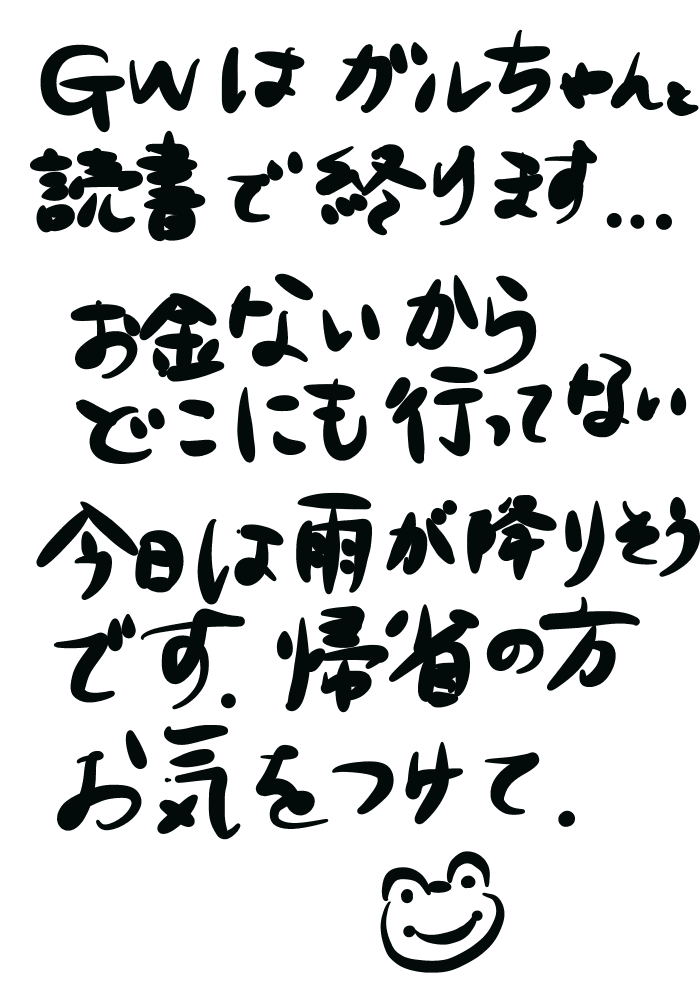 GWは ガルちゃんと
読書で終ります...
お金ないから
どこにも行ってない
今日は雨が降りそう
です. 帰省の方
お気をつけて.